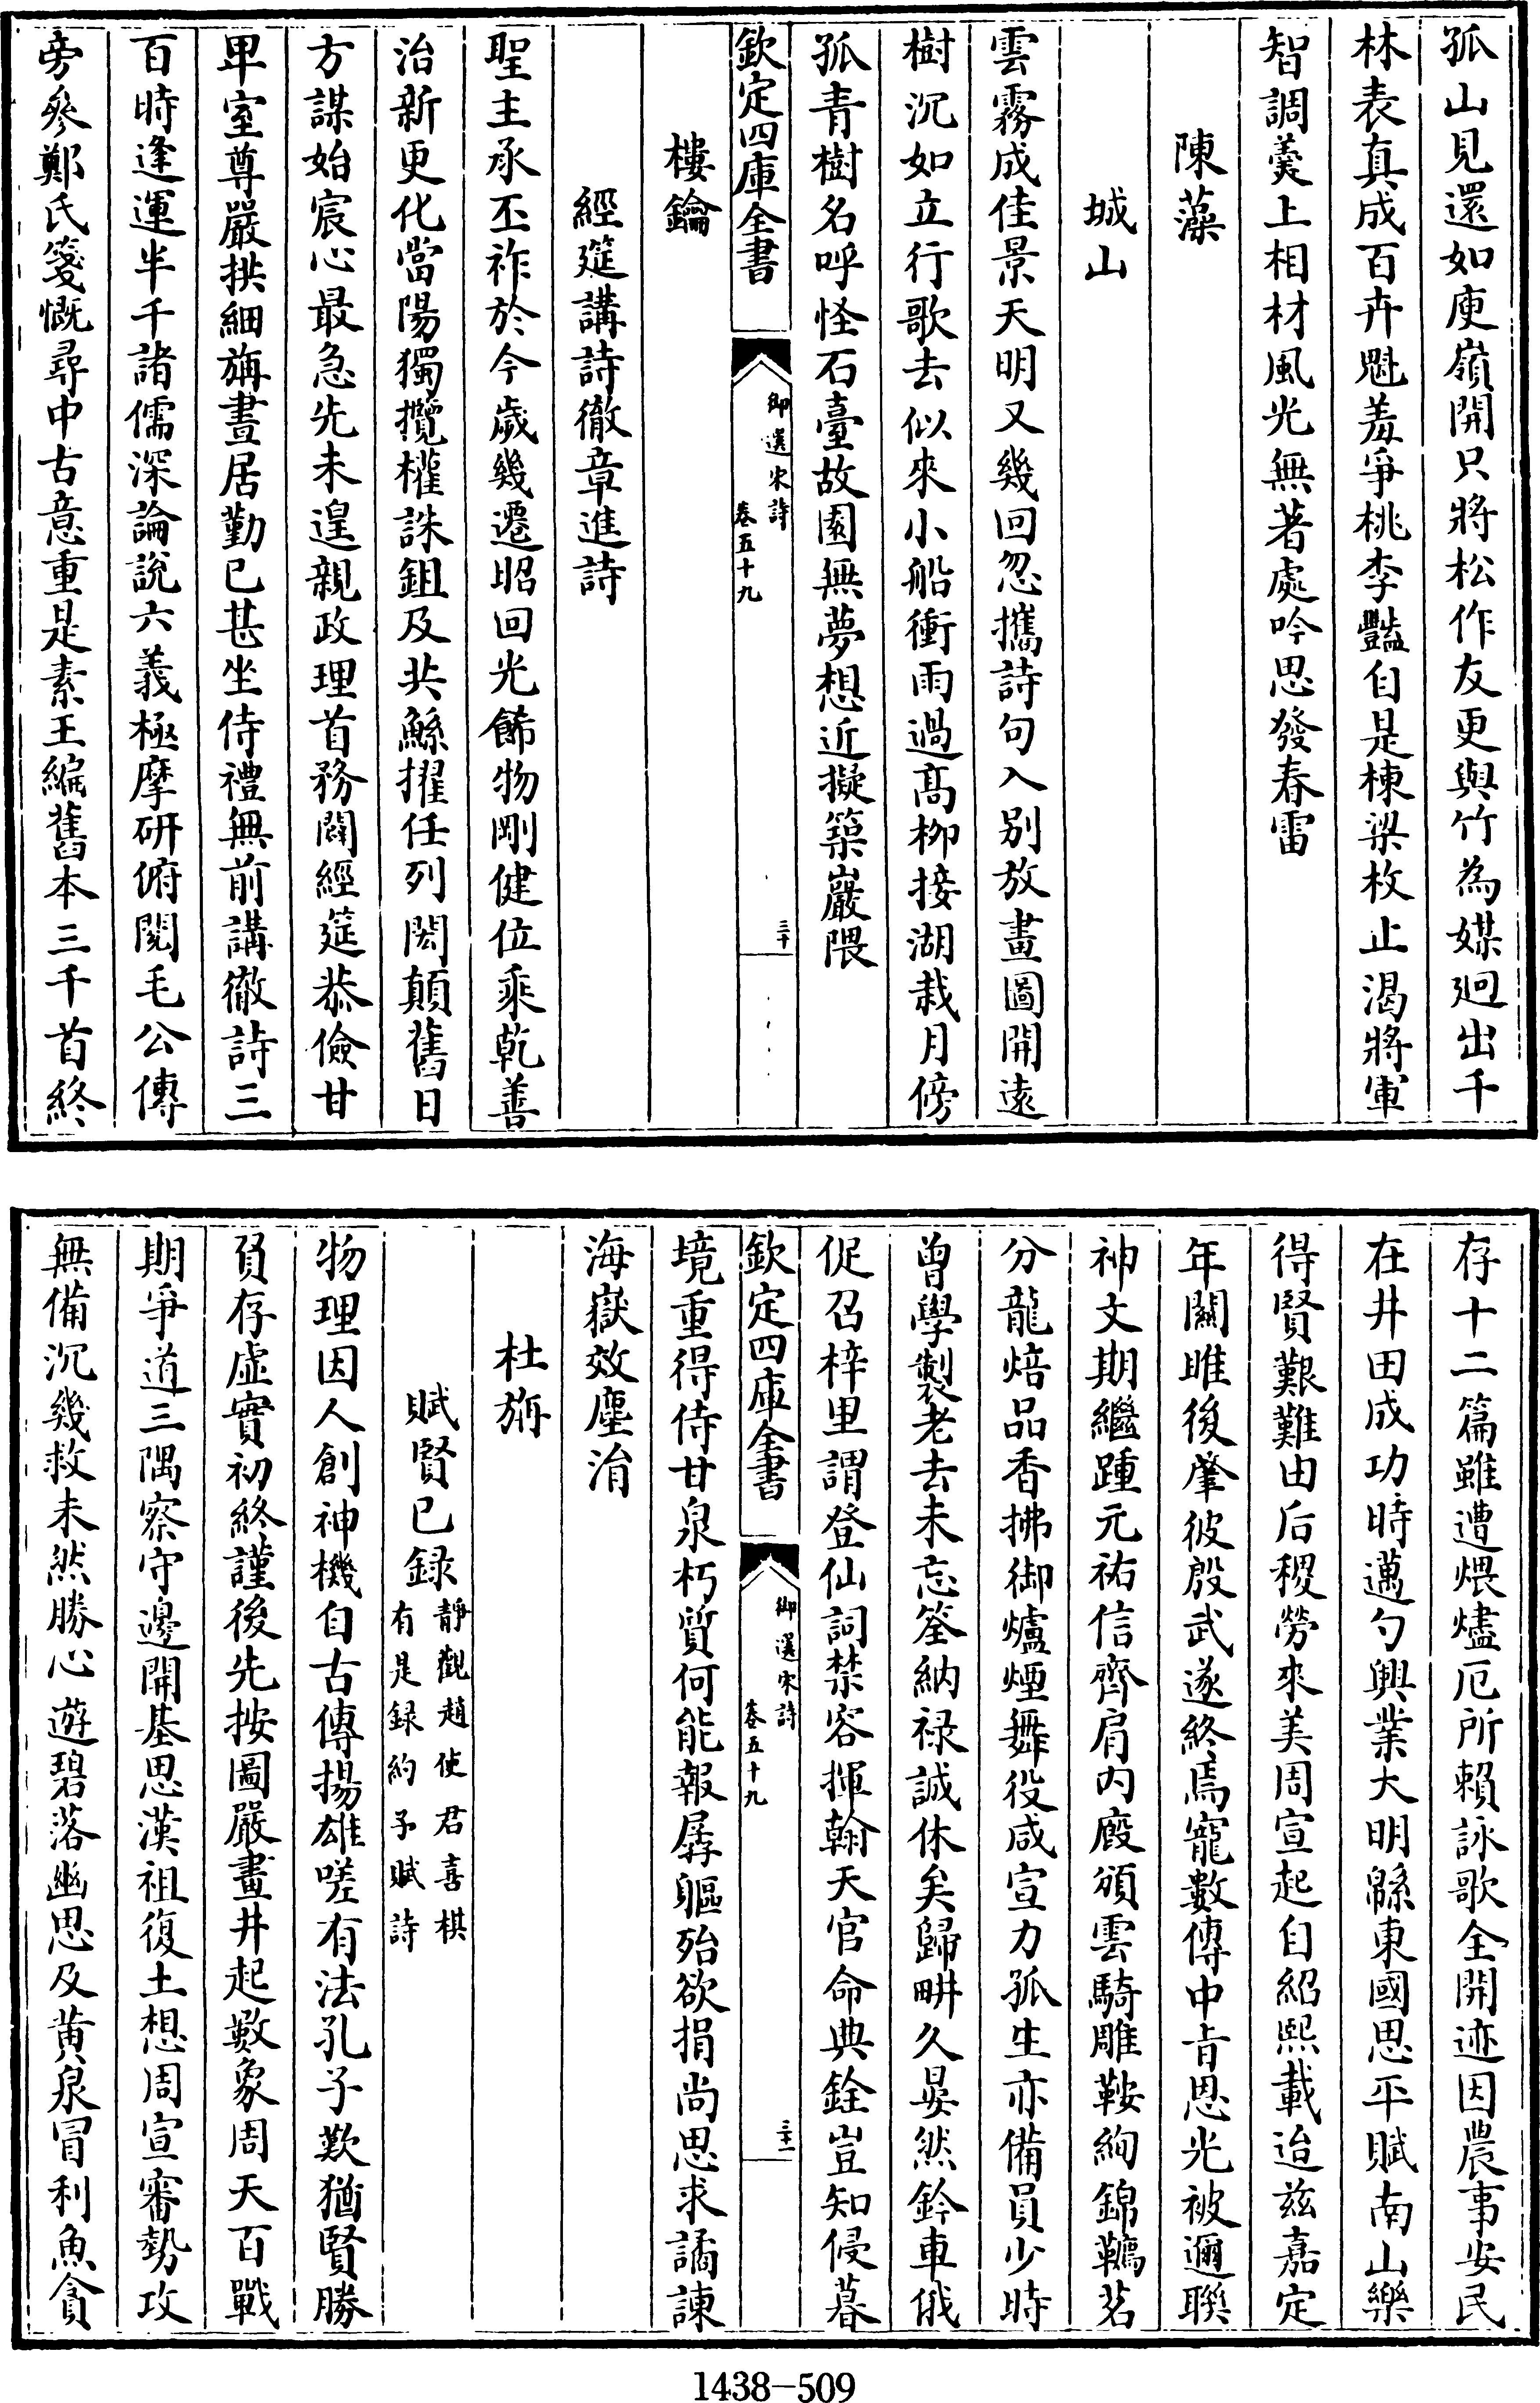 孤山見還如庾嶺開只將松作友更與竹為媒迥出千
林表真成百卉魁羞爭桃李豔自是棟梁枚止渴將軍
智調羹上相材風光無著處吟思發春雷
陳藻
城山
雲霧成佳景天明又幾回忽攜詩句入別放畫圖開遠
樹沉如立行歌去似來小船衝雨過髙柳接湖栽月傍
孤青樹名呼怪石臺故園無夢想近擬築巖隈
欽定四庫全書
御選宋詩
卷五十九
三十
樓鑰
經筵講詩徹章進詩
聖主承丕祚於今歲幾遷昭回光飾物剛健位乘乾善
治新更化當陽獨攬權誅鉏及共鯀擢任列閎顛舊日
方謀始宸心最急先未遑親政理首務闢經筵恭儉甘
卑室尊嚴拱細旃晝居勤已甚坐侍禮無前講徹詩三
百時逢運半千諸儒深論說六義極摩研俯閱毛公傳
旁參鄭氏箋慨尋中古意重是素王編舊本三千首終
存十二篇雖遭煨燼厄所賴詠歌全開迹因農事安民
在井田成功時邁勺興業大明緜東國思平賦南山樂
得賢艱難由后稷勞來美周宣起自紹熙載迨兹嘉定
年關雎後肇彼殷武遂終焉寵數傳中旨恩光被邇聯
神文期繼踵元祐信齊肩内廄頒雲騎雕鞍絢錦韉茗
分龍焙品香拂御爐煙舞役咸宣力孤生亦備員少時
曾學製老去未忘筌納祿誠休矣歸畊久晏然鈐車俄
促召梓里謂登仙詞禁容揮翰天官命典銓豈知侵暮
欽定四庫全書
御選宋詩
卷五十九
三十一
境重得侍甘泉朽質何能報孱軀殆欲捐尚思求譎諫
海嶽效塵涓
杜旃
賦賢已録
靜觀趙使君喜棋
有是録約予賦詩
物理因人創神機自古傳揚雄嗟有法孔子歎猶賢勝
負存虛實初終謹後先按圖嚴畫井起數象周天百戰
期爭道三隅察守邊開基思漢祖復土想周宣審勢攻
無備沉幾救未然勝心遊碧落幽思及黃泉冒利魚貪
1438-509